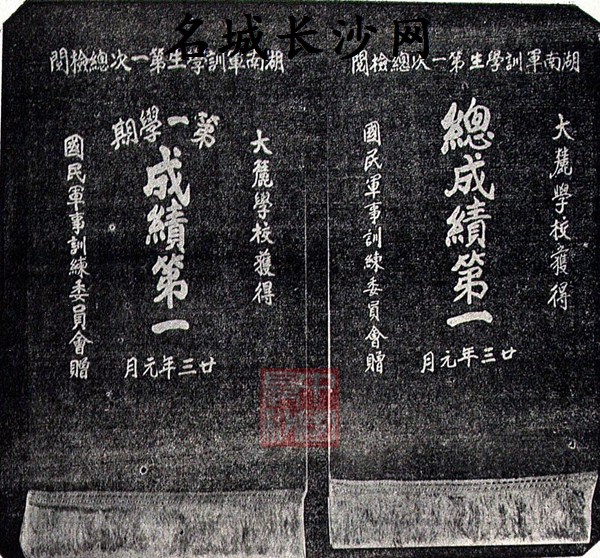 名城长沙网
湖南軍訓學生第一次總檢閱
大麓學校獲得
總成績第一
國民軍事訓練委員會贈
廿三年元月
湖南軍訓學生第一次總檢閱
大麓學校獲得
第一學期
成績第一
國民軍事訓練委員會贈
廿三年元月